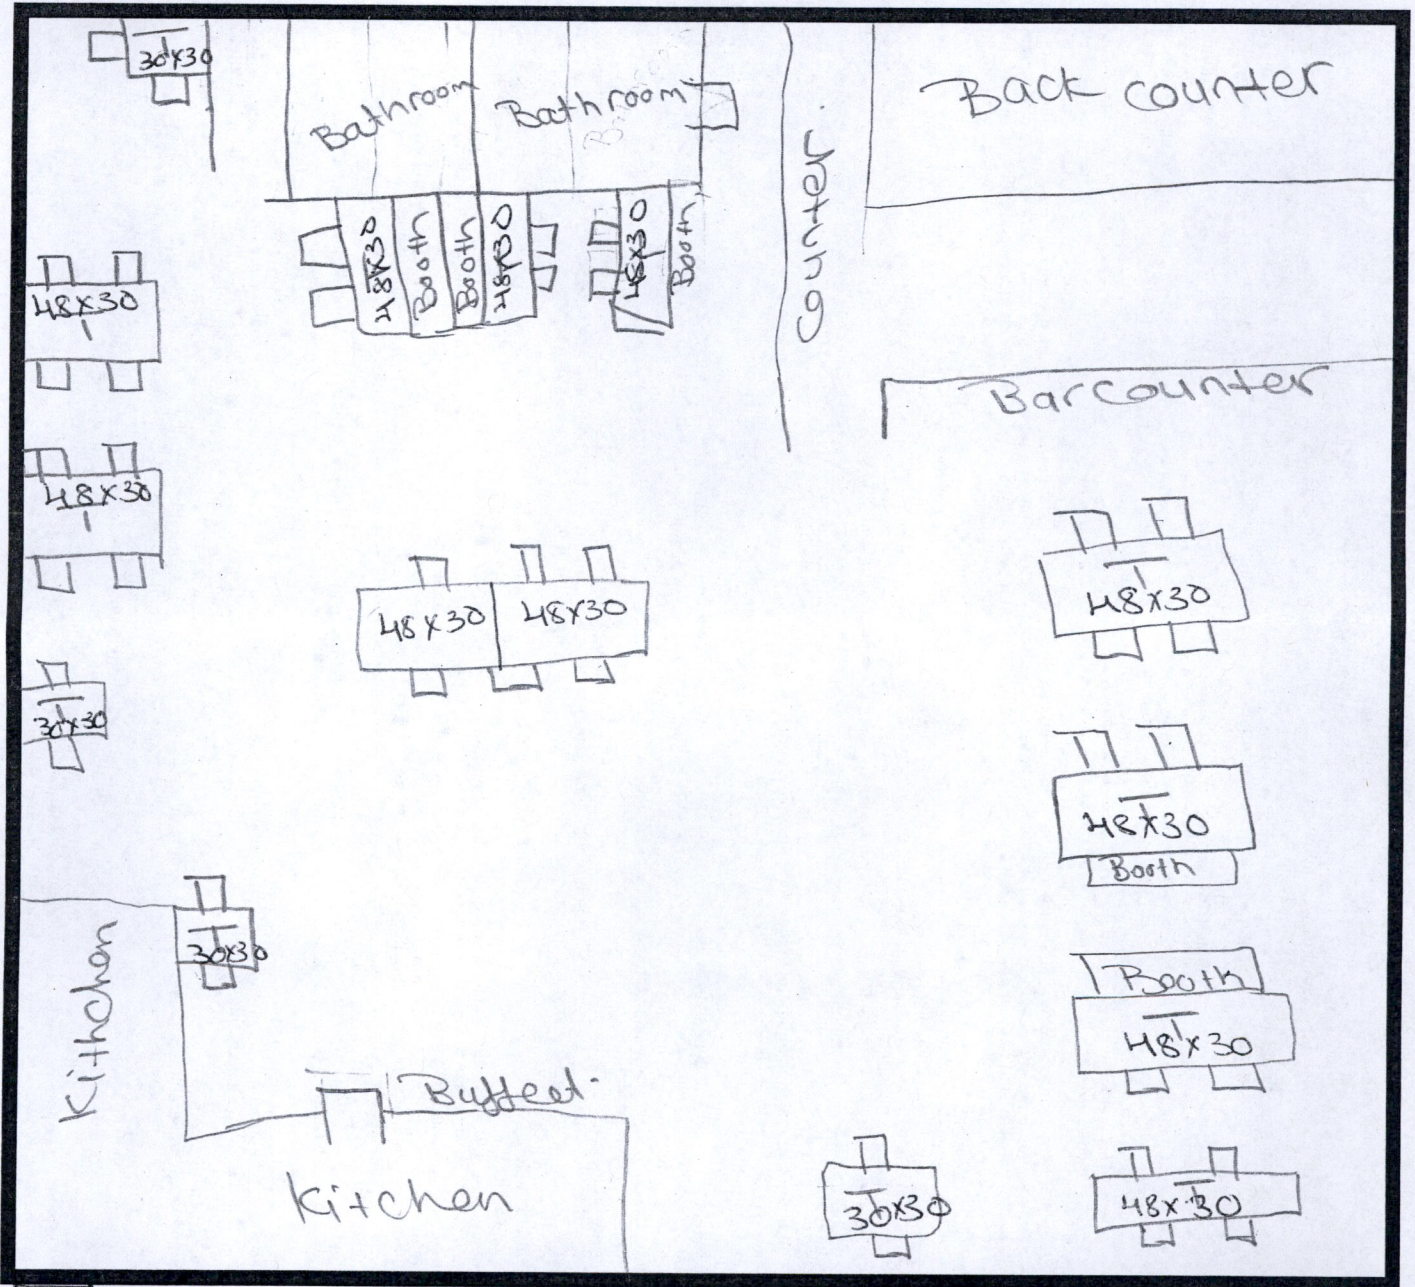 30x30
Bathroom
Bathroom
Back counter
Counter
48x30
Booth
Booth
48x30
48x30
Booth
48x30
Bar counter
48x30
48x30
48x30
48x30
30x30
48x30
Booth
30x30
Kithchen
Booth
48x30
Buffeet
Kitchen
30x30
48x30